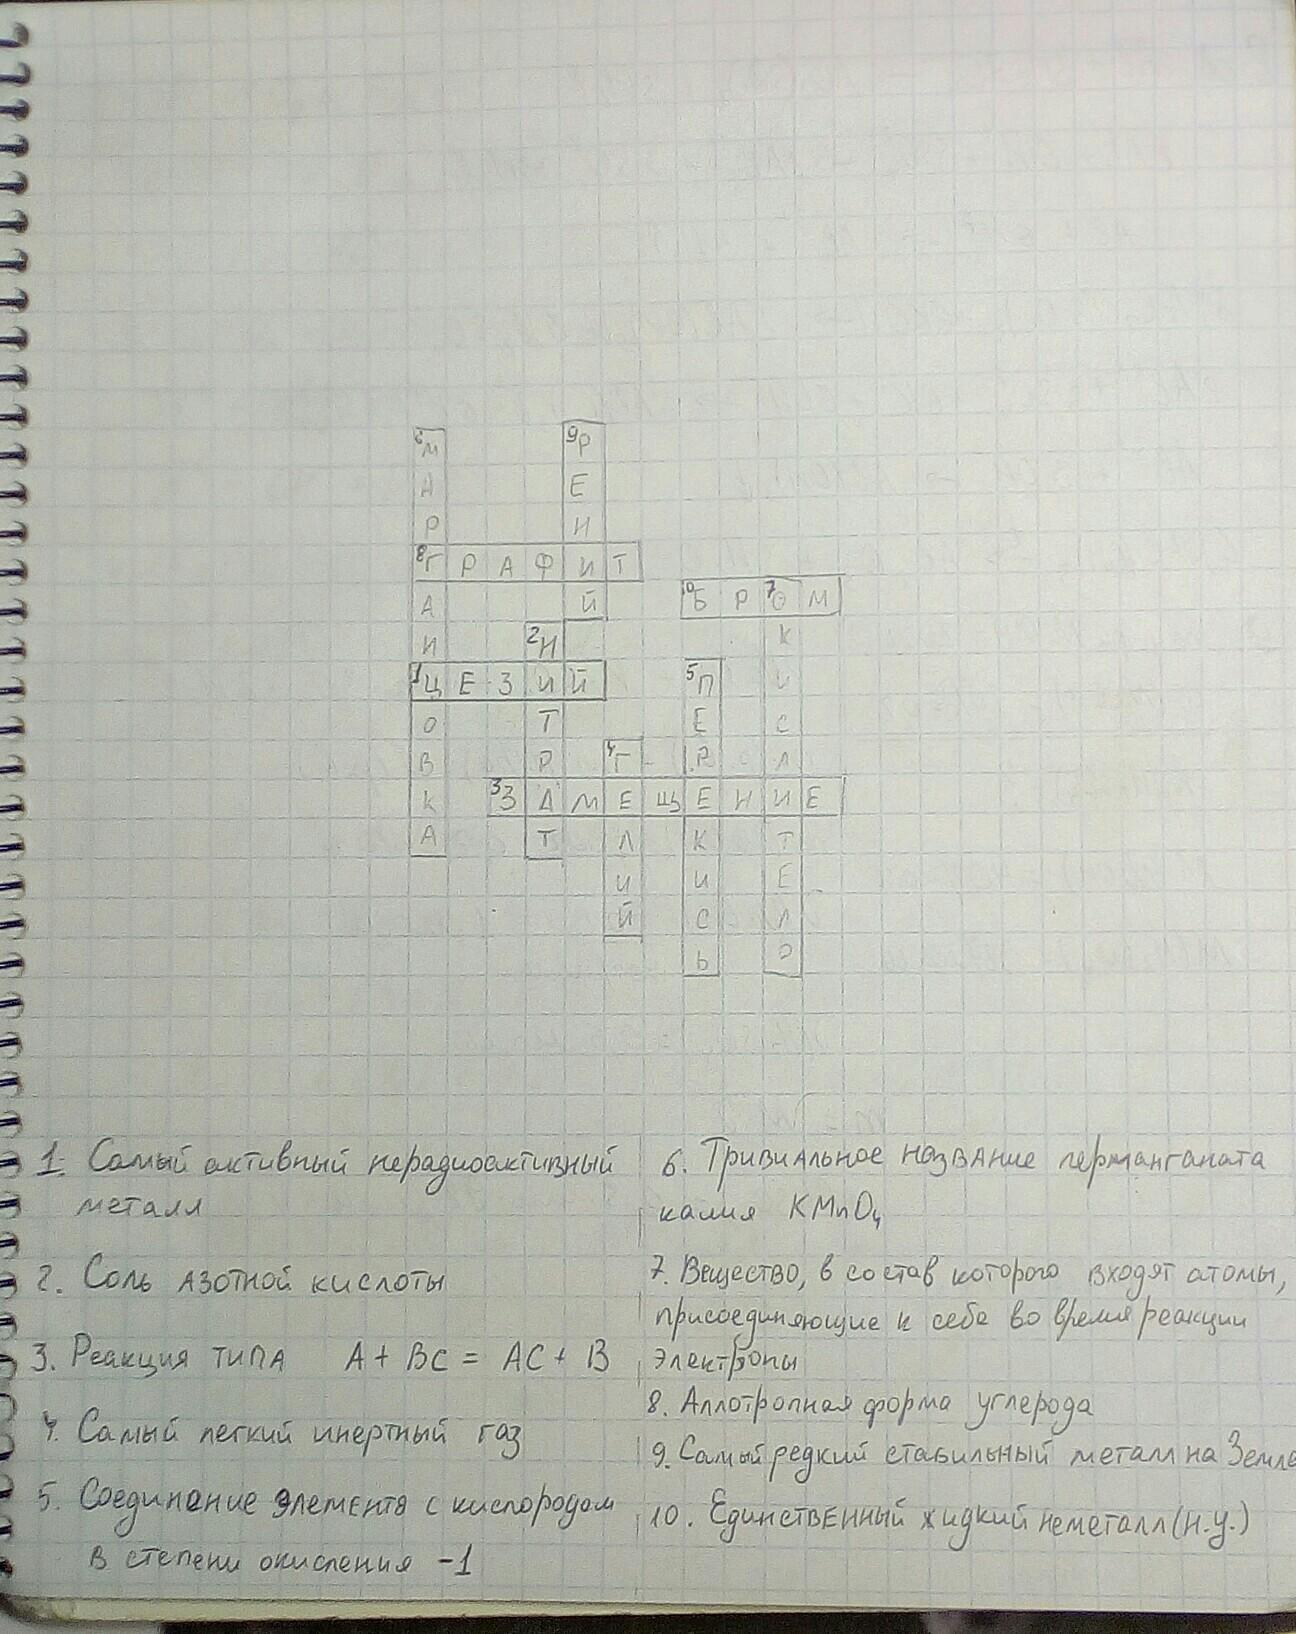 6М 9Р
А Е
Р Н
8Г Р А Ф И Т
А Й 10Б Р 7О М
Н 2Н К
1Ц Е З И Й 5П И
О Т Е С
В Р 4Г Р Л
К 3З А М Е Щ Е Н И Е
А Т Л К Т
И И Е
Й С Л
Ь Ь
1. Самый активный нерадиоактивный
металл
2. Соль азотной кислоты
3. Реакция типа A + BC = AC + B
4. Самый легкий инертный газ
5. Соединение элемента с кислородом
в степени окисления -1
6. Тривиальное название перманганата
калия KMnO4
7. Вещество, в состав которого входят атомы,
присоединяющие к себе во время реакции
электроны
8. Аллотропная форма углерода
9. Самый редкий стабильный металл на Земле
10. Единственный жидкий неметалл (н.у.)